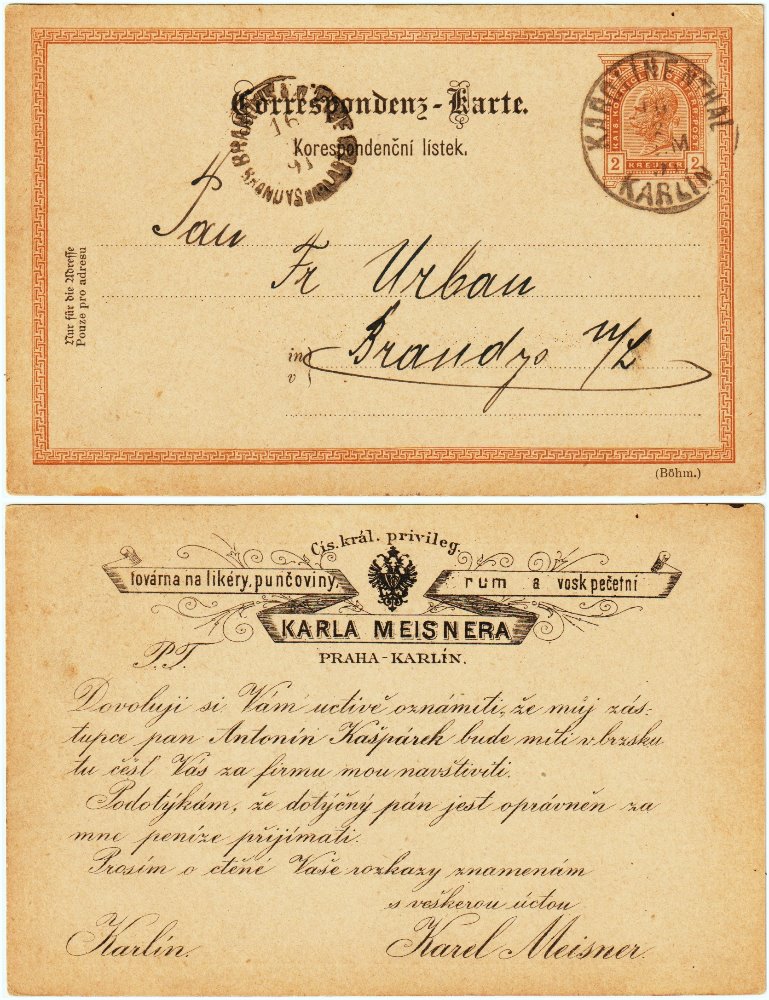 Correspondenz-Karte.
Korespondenční lístek.
KAROLINENTHAL
KARLÍN
2 KREUZER 2
16
91
Pan
Fr Urban
in
v
Brandys n/L
Nur für die Adresse
Pouze pro adresu
(Böhm.)
Cis. král. privileg.
továrna na likéry, punčoviny, rum a vosk pečetní
KARLA MEISNERA
PRAHA-KARLÍN.
P.T.
Dovoluji si Vám uctivě oznámiti, že můj zás-
tupce pan Antonín Kašpárek bude míti v brzsku
tu čěsť Vás za firmu mou navštíviti.
Podotýkám, že dotýčný pán jest oprávněn za
mne peníze přijímati.
Prosím o ctěné Vaše rozkazy znamenám
s veškerou úctou
Karlín.
Karel Meisner.